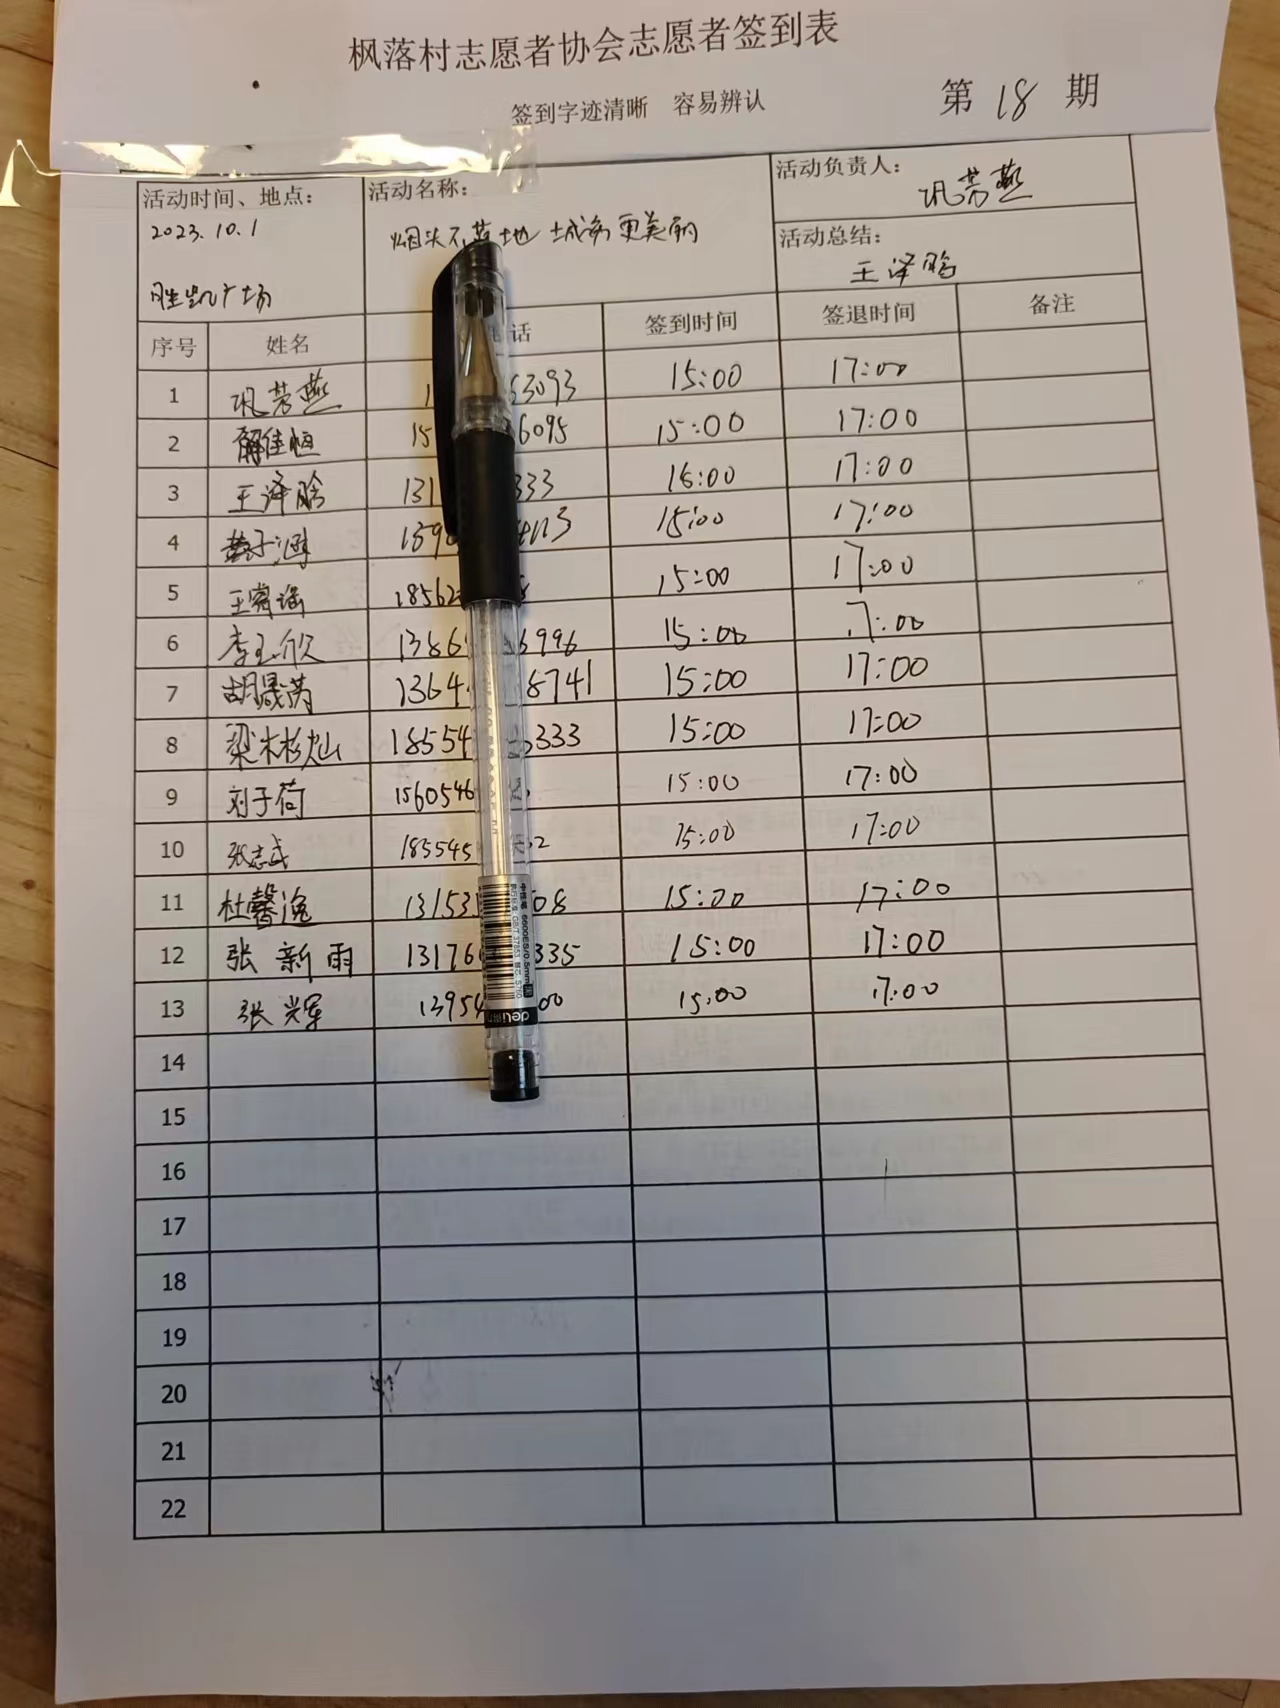 枫落村志愿者协会志愿者签到表
签到字迹清晰 容易辨认
第 18 期
活动时间、地点:
2023.10.1
胜凯广场
活动名称:
烟头不落地 城市更美丽
活动负责人:
巩芳燕
活动总结:
王泽晗
序号 姓名 话 签到时间 签退时间 备注
1 巩芳燕 1 53093 15:00 17:00
2 解佳恒 15 6095 15:00 17:00
3 王泽晗 131 333 15:00 17:00
4 159 15:00 17:00
5 王睿瑶 18562 8 15:00 17:00
6 李玉欣 1386 6996 15:00 17:00
7 胡晟芮 1364 8741 15:00 17:00
8 梁木杉灿 18554 333 15:00 17:00
9 刘子荷 1560546 15:00 17:00
10 张志成 185545 2 15:00 17:00
11 杜馨逸 131531 08 15:00 17:00
12 张新雨 13176 335 15:00 17:00
13 张兴军 13954 00 15:00 17:00
14
15
16
17
18
19
20
21
22
中性笔 6600ES/0.5mm 黑
deli